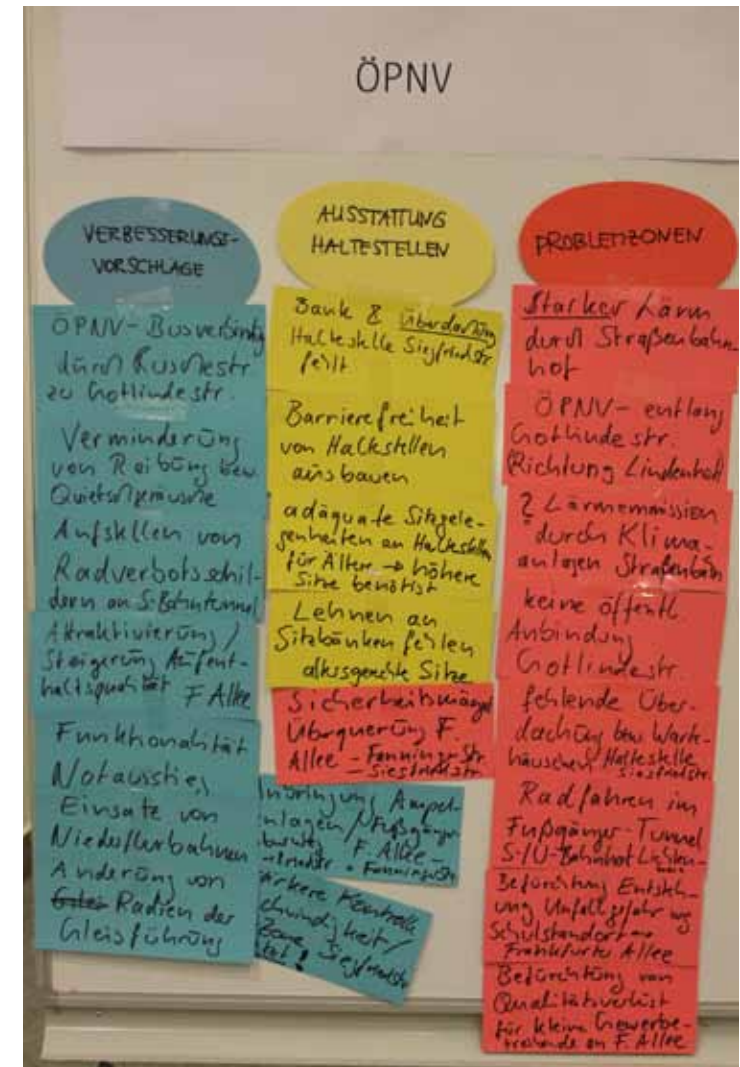 ÖPNV
VERBESSERUNGS-
VORSCHLÄGE
ÖPNV- Busverbindg
durch Ruschestr
zu Gotlindestr.
Verminderung
von Reibung bzw.
Quietschgeräusche
Aufstellen von
Radverbotsschil-
dern an S-Bahntunnel
Attraktivierung /
Steigerung Aufent-
haltsqualität F Allee
Funktionalität
Notausstieg
Einsatz von
Niederflurbahnen
Änderung von
Radien der
Gleisführung
AUSSTATTUNG
HALTESTELLEN
Bank & Überdachung
Haltestelle Siegfriedstr.
fehlt
Barrierefreiheit
von Haltestellen
ausbauen
adäquate Sitzgele-
genheiten an Haltestellen
für Ältere → höhere
Sitze benötigt
Lehnen an
Sitzbänken fehlen
altersgerechte Sitze
Sicherheitsmängel
Überquerung F.
Allee - Fanningerstr.
- Siegfriedstr
Ampel-
nlagen / Fußgänger
F. Allee -
- Fanningerstr
ärkere Kontrolle
chwindigkeit /
Zone Siegfriedstr
!
PROBLEMZONEN
Starker Lärm
durch Straßenbahn-
hof
ÖPNV- entlang
Gotlindestr.
Richtung Lindenhof
? Lärmemmission
durch Klima-
anlagen Straßenbahn
keine öffentl
Anbindung
Gotlindestr.
fehlende Über-
dachung bzw Warte-
häuschen Haltestelle
Siegfriedstr.
Radfahren im
Fußgänger-Tunnel
S-/U-Bahnhof Lichten-
Befürchtung Entsteh-
ung Unfallgefahr wg
Schulstandort an
Frankfurter Allee
Befürchtung von
Qualitätsverlust
für kleine Gewerbe-
treibende an F. Allee